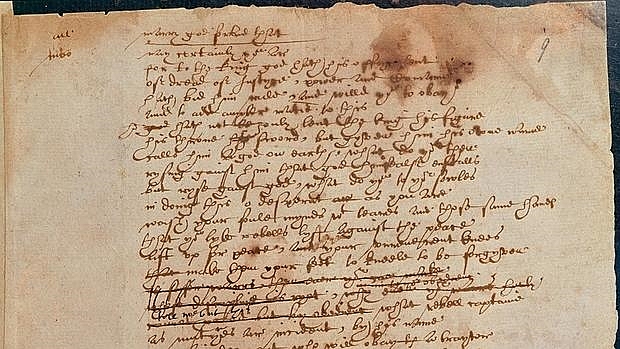 all marry god forbid that
moo nay certainly yo ar
for to the king god hath his offyce lent
of dread of Iustyce, power and Comaund
hath bid him rule, and willd yo to obay
and to add ampler matie to this
he hath not only lent the king his figure
his throne his sword, but gyven him his owne name
calls him a god on earth, what do yo then
rysing gainst him that god himsealf enstalls
but ryse gainst god, what do yo to yor sowles
in doing this o desperat as you are
wash your foule mynds wt teares and those same hands
that yo lyke rebells lyft against the peace
lift vp for peace, and your vnreuerent knees
make them your feet to kneele to be forgyven
is safer warrs, then euer yo can make
whose discipline is ryot, why euen yor hurly
tell me but this what rebell captaine
as mutynes ar incident, by his name
who will obay a traytor